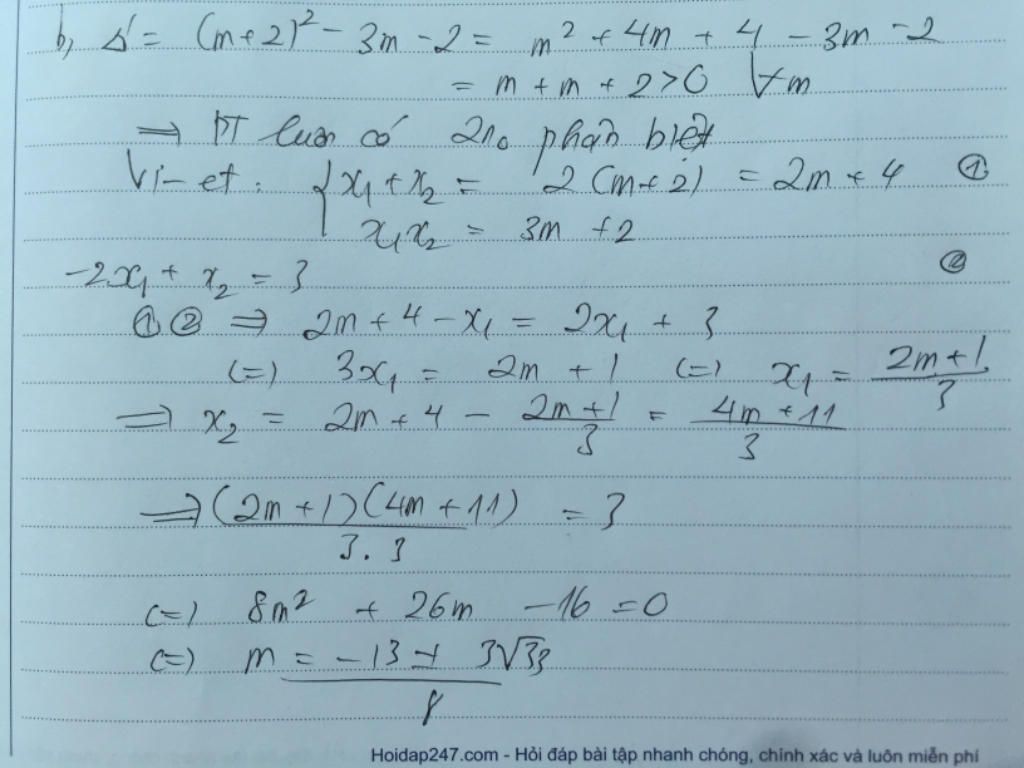 b, Δ' = (m+2)² - 3m - 2 = m² + 4m + 4 - 3m - 2
= m + m + 2 > 0 ∀m
⇒ PT luôn có 2no phân biệt
Vi-et : { x₁ + x₂ = 2(m+2) = 2m + 4 ①
x₁x₂ = 3m + 2
-2x₁ + x₂ = 3 ②
① ② ⇒ 2m + 4 - x₁ = 2x₁ + 3
(=) 3x₁ = 2m + 1 (=) x₁ = (2m+1)/3
⇒ x₂ = 2m + 4 - (2m+1)/3 = (4m+11)/3
⇒ (2m+1)(4m+11)/(3.3) = 3
(=) 8m² + 26m - 16 = 0
(=) m = (-13 ± 3√33)/8
Hoidap247.com - Hỏi đáp bài tập nhanh chóng, chính xác và luôn miễn phí